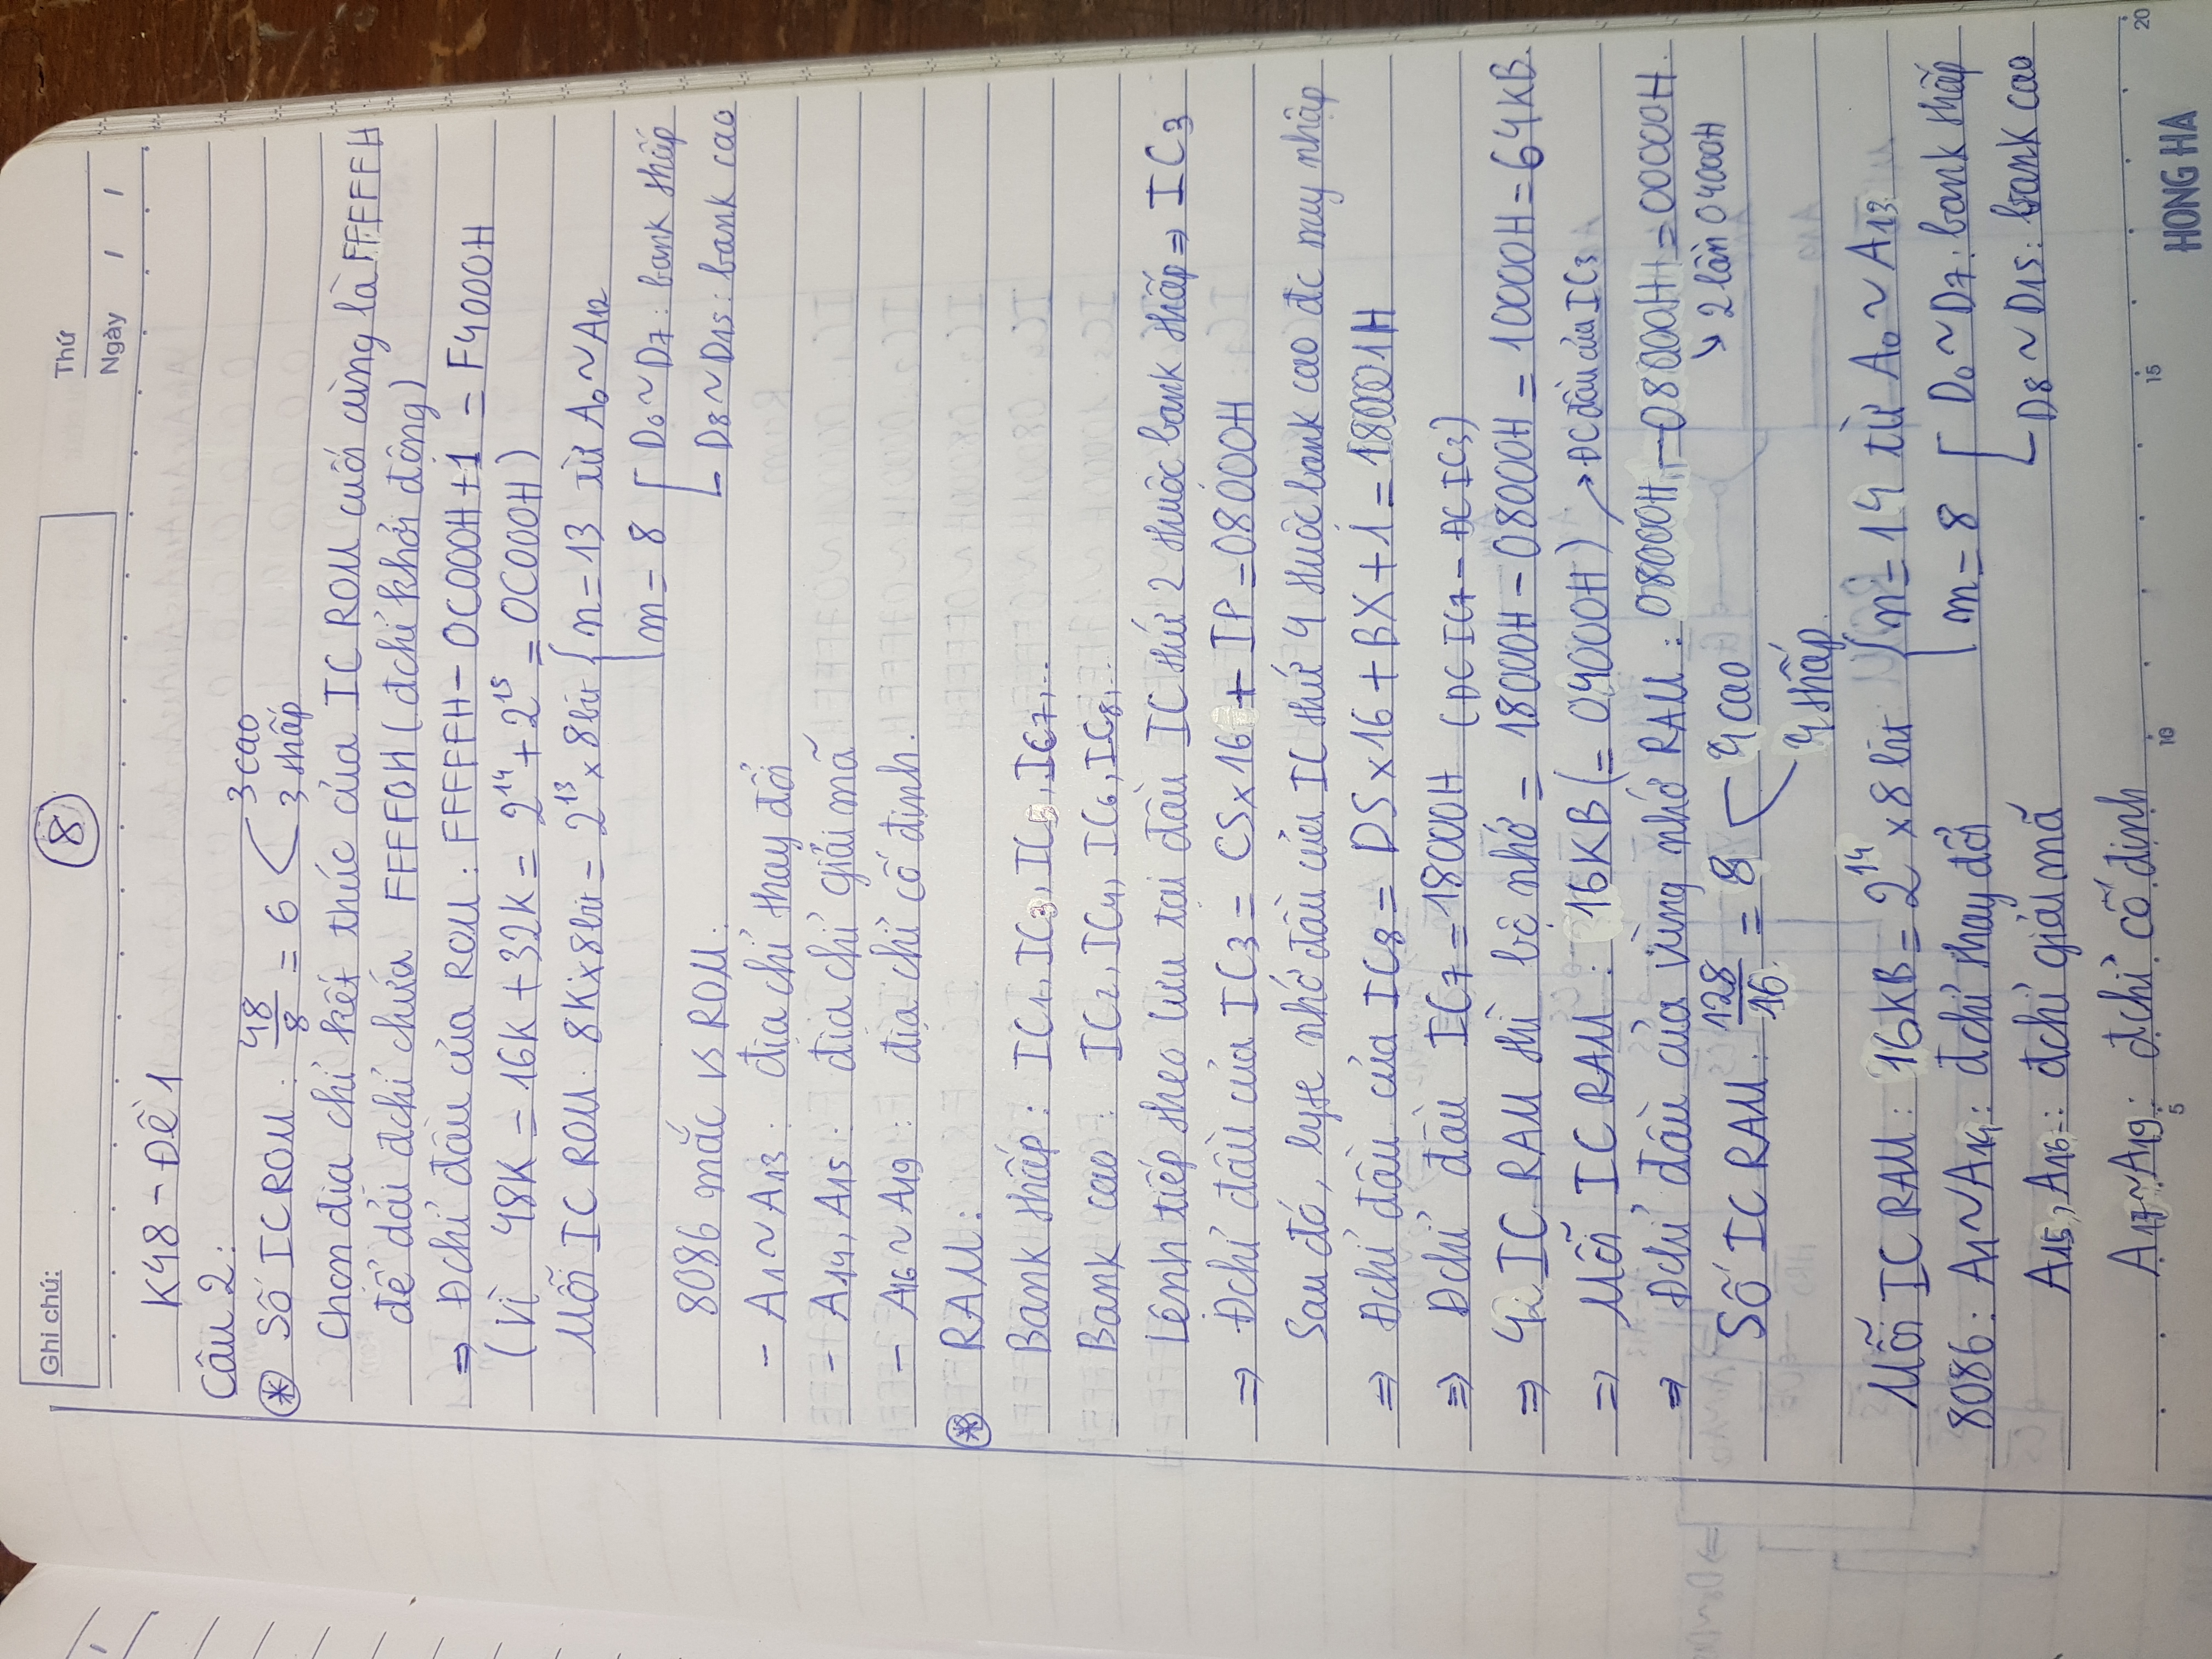 Ghi chú:
8
Thứ
Ngày / /
K48 - Đề 1
Câu 2:
* Số IC ROM: 48/8 = 6 < 3 cao
3 thấp
Chọn địa chỉ kết thúc của IC ROM cuối cùng là FFFFFH
để dải đchỉ chứa FFFF0H (đchỉ khởi động)
⇒ Đchỉ đầu của ROM: FFFFFH - 0C000H + 1 = F4000H
(Vì 48K = 16K + 32K = 2^14 + 2^15 = 0C000H)
Mỗi IC ROM: 8K x 8bit = 2^13 x 8bit { n = 13 từ A0 ~ A12
m = 8 [ D0 ~ D7: bank thấp
D8 ~ D15: bank cao
8086 mắc vs ROM:
- A1 ~ A13: địa chỉ thay đổi
- A14, A15: địa chỉ giải mã
- A16 ~ A19: địa chỉ cố định.
* RAM:
Bank thấp: IC1, IC3, IC5, IC7,...
Bank cao: IC2, IC4, IC6, IC8,...
Lệnh tiếp theo lưu tại đầu IC thứ 2 thuộc bank thấp ⇒ IC3
⇒ Đchỉ đầu của IC3 = CS x 16 + IP = 08000H
Sau đó, byte nhớ đầu của IC thứ 4 thuộc bank cao đc truy nhập
⇒ Đchỉ đầu của IC8 = DS x 16 + BX + 1 = 18001H
⇒ Đchỉ đầu IC7 = 18000H (ĐC IC7 - ĐC IC3)
⇒ 4 IC RAM thì bộ nhớ = 18000H - 08000H = 10000H = 64KB.
⇒ Mỗi IC RAM: 16KB (= 04000H) → ĐC đầu của IC3
⇒ Đchỉ đầu của vùng nhớ RAM: 08000H - 08000H = 00000H.
↘ 2 lần 04000H
Số IC RAM: 128/16 = 8 < 4 cao
4 thấp.
Mỗi IC RAM: 16KB = 2^14 x 8 bit { n = 14 từ A0 ~ A13
m = 8 [ D0 ~ D7: bank thấp
D8 ~ D15: bank cao
8086: A1 ~ A14: đchỉ thay đổi
A15, A16: đchỉ giải mã
A17 ~ A19: đchỉ cố định
5 10 15 20
HONG HA